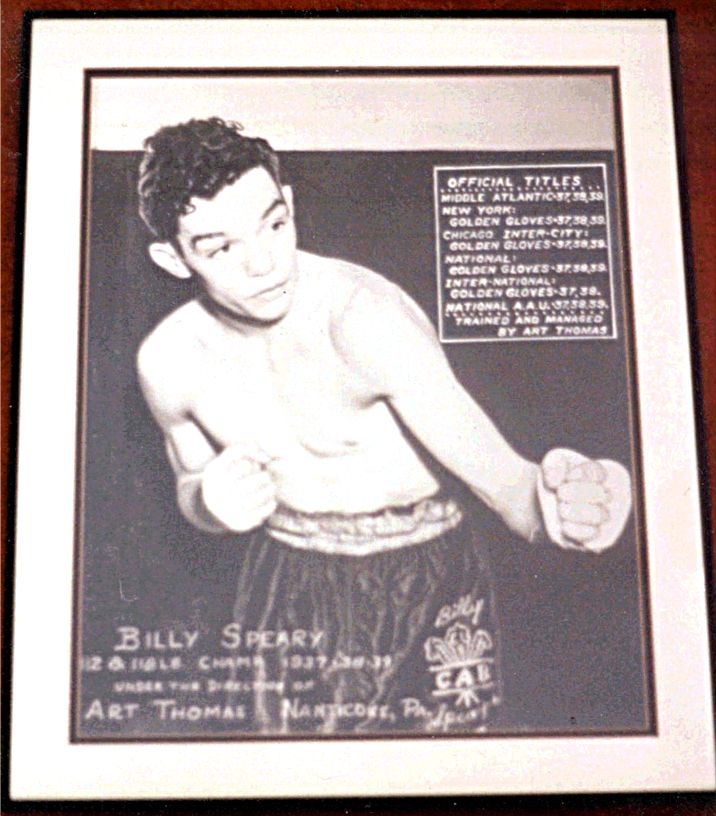 OFFICIAL TITLES
MIDDLE ATLANTIC-37,38,39.
NEW YORK:
GOLDEN GLOVES-37,38,39.
CHICAGO INTER-CITY:
GOLDEN GLOVES-37,38,39.
NATIONAL:
GOLDEN GLOVES-37,38,39.
INTER-NATIONAL:
GOLDEN GLOVES-37,38.
NATIONAL A.A.U.-37,38,39.
TRAINED AND MANAGED
BY ART THOMAS
Billy
CAB
BILLY SPEARY
112 & 118 LB CHAMP 1937-38-39
UNDER THE DIRECTION OF
ART THOMAS NANTICOKE, PA.